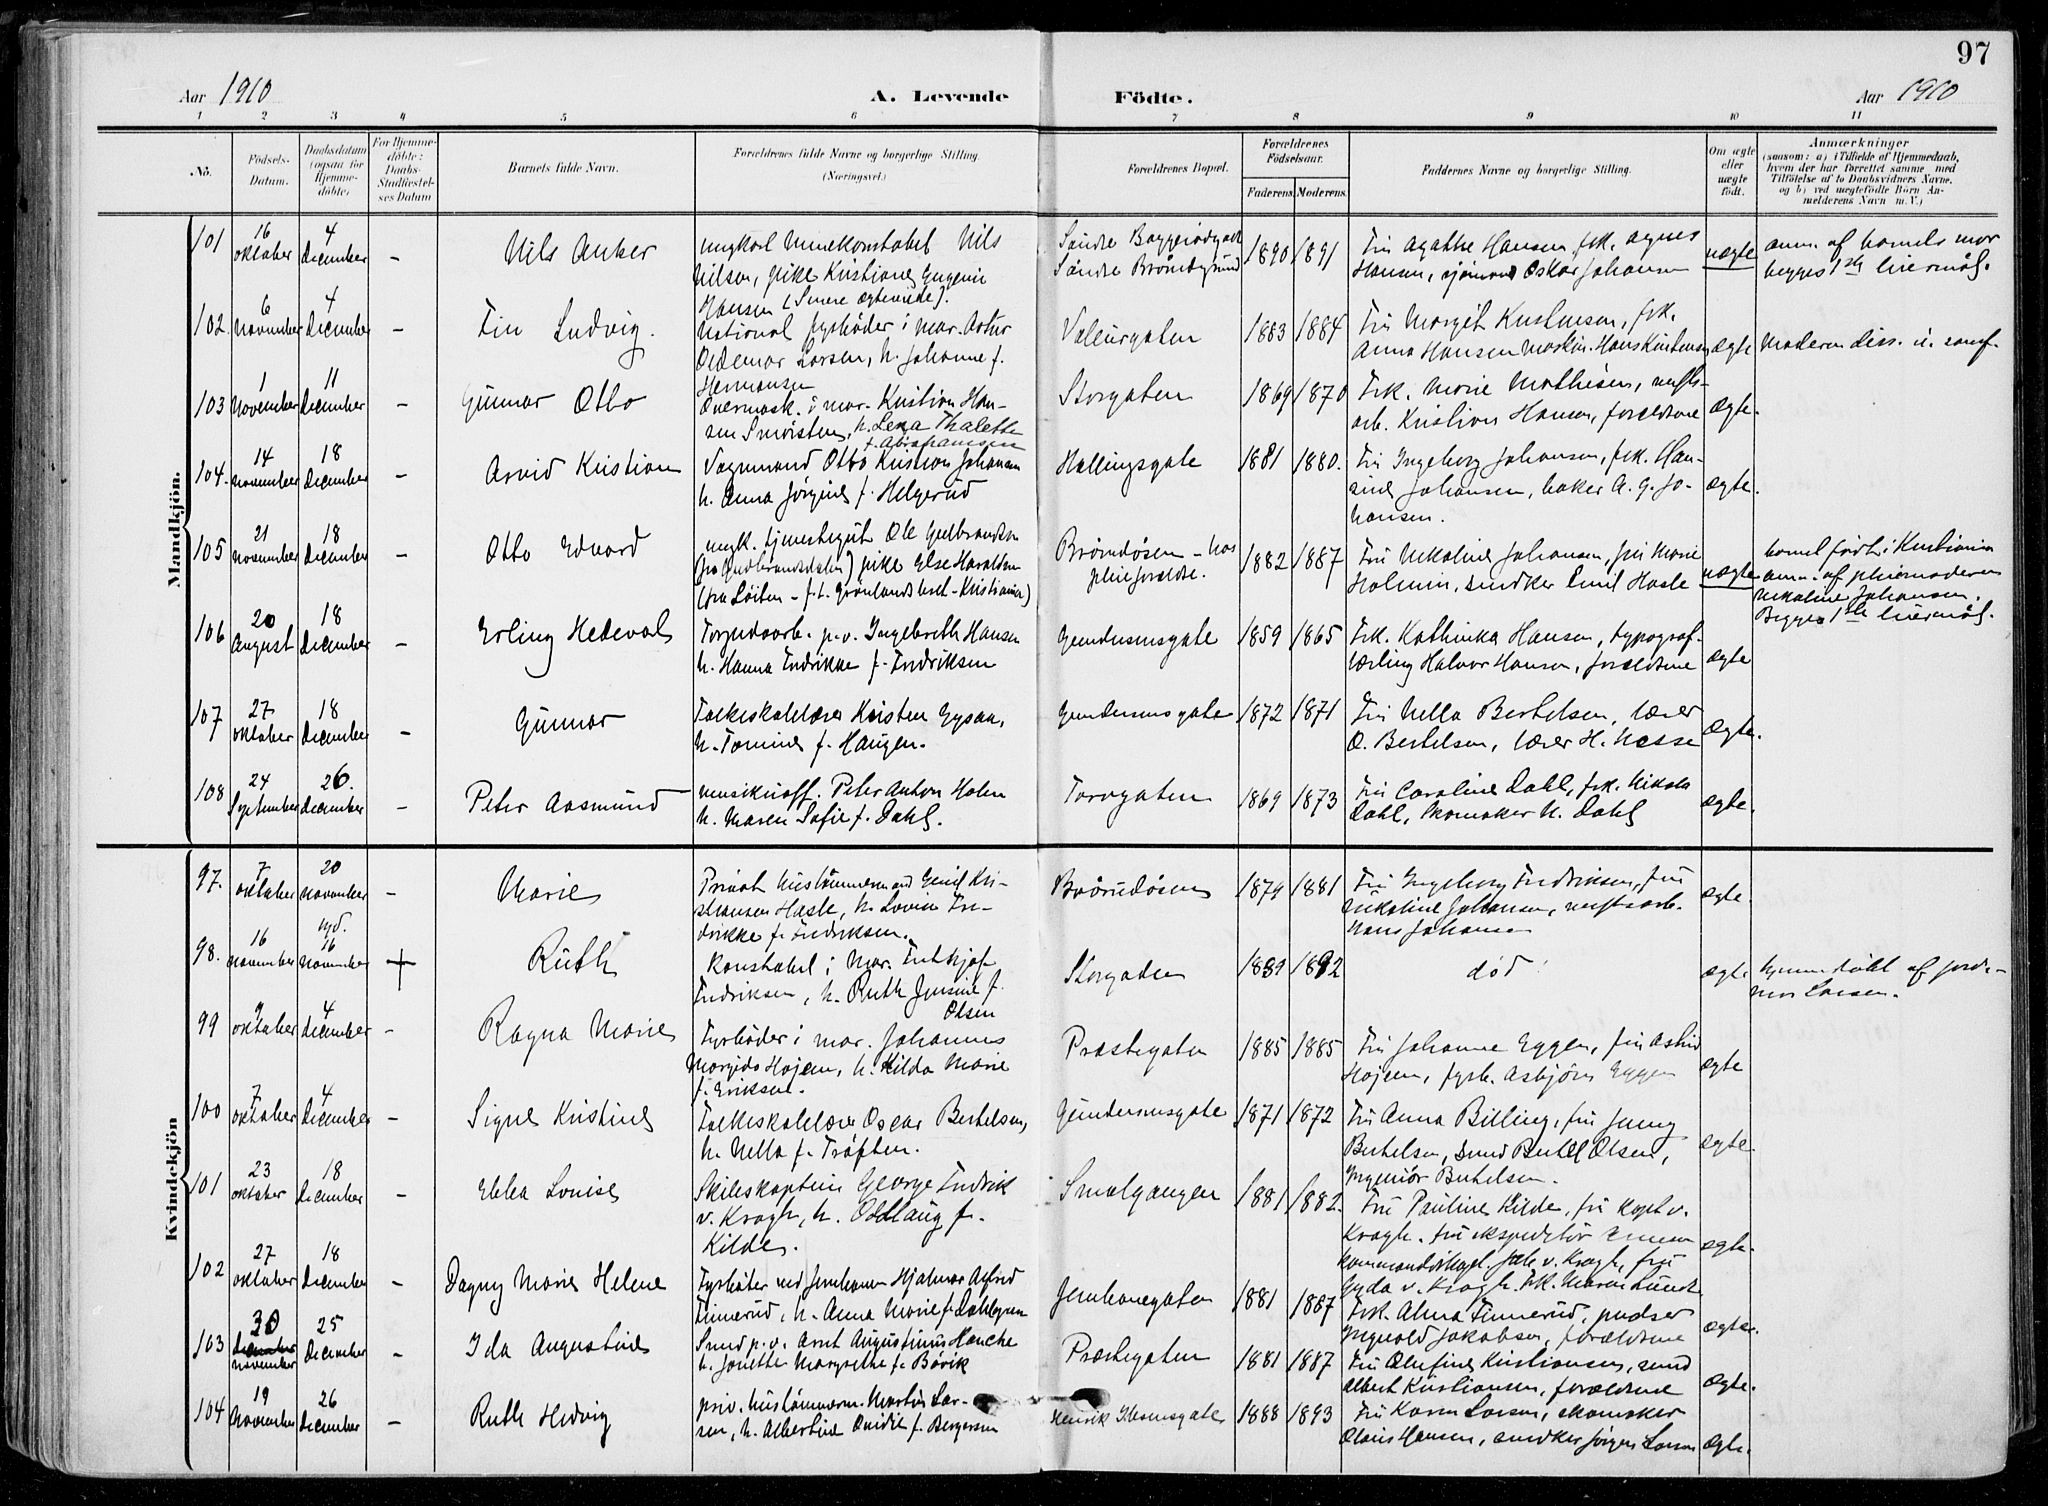 97
Aar 1910
A. Levende Födte.
Aar 1910
1 2 3 4 5 6 7 8 9 10 11
No.
Födsels-Datum.
Daabsdatum (ogsaa for Hjemme-döbte)
For Hjemme-döbte: Daabs-Stadfæstel-ses Datum
Barnets fulde Navn.
Forældrenes fulde Navne og borgerlige Stilling.
(Næringsvei.)
Forældrenes Bopæl.
Forældrenes Födselsaar.
Faderens. Moderens.
Faddernes Navne og borgerlige Stilling.
Om ægte eller uægte födt.
Anmærkninger
(saasom: a) i Tilfælde af Hjemmedaab, hvem der har forrettet samme med Tilföielse af to Daabsvidners Navne, og b) ved uægtefödte Börn An-melderens Navn m.V.)
Mandkjön.
101 16 oktober 4 December - Nils Anker
ungkarl Minekonstabel Nils
Nilsen, pike Kristiane Eugenie
Hansen (Senere ægteviede).
Søndre 1890 1891
Fru Agathe Hansen, frk. Agnes
Hansen, sjømand Oskar Johansen
uægte
anm. af barnets mor
begges 1ste leiermål.
102. 6 November 4 December - Fin Ludvig.
National fyrbøder i mar. Artur
Oldemar Larsen, h. Johanne f.
Hermansen
Valeurgaten 1883 1884
Fru Margit Kristensen, frk.
Anna Hansen Maskin. Hans Kristensen
ægte
Moderen diss. u. samf.
103 1 November 11 December - Gunnar Otto
Overmask. i mar. Kristian Han-
sen Smørsten, h. Lena Thalette
f. Abrahamsen
Storgaten 1869 1870
Frk. Marie Mathisen, verfts-
arb. Kristian Hansen, forældrene
ægte.
104. 14 November 18 December - Arvid Kristian
Vognmand Otto Kristian Johansen
h. Anna Jørgine f. Helgerud
Hallingsgate 1881 1880.
Fru Ingeborg Johansen, frk. Han-
sine Johansen, baker A. G. Jo-
hansen.
ægte.
105 21 November 18 December - Otto Edvard
ungk. tjenestegut Ole Gudbrandsen
(fra Gudbrandsdalen) pike Else Haraldsen
(fra Løiten - f.t. Grønlands leret - Kristiania)
Brøndøsen - hos
pleieforældre. 1882 1887
Fru Nikoline Johansen, fru Marie
Holmen, snedker Emil Hasle
uægte
barnet født i Kristiania
anm. af pleiemoderen
Nikoline Johansen.
Begges 1ste leiermål.
106 20 August 18 December - Erling Hedevol
Torpedoarb. p.v. Ingebreth Hansen
h. Hanna Fredrikke f. Fredriksen
Gundersensgate 1859 1865
Frk. Kathinka Hansen, typograf-
lærling Halvor Hansen, forældrene
ægte
107 27 oktober 18 December - Gunnar
Folkeskolelærer Kristen
h. Tomine f. Haugen.
Gundersensgate 1872 1871
Fru Nella Bertelsen, lærer
O. Bertelsen, lærer H. Nesse
ægte.
108 24 September 26. December - Peter Aasmund
musikuoff. Peter Anton Holen
h. Maren Sofie f. Dahl.
Torvgaten 1869 1873
Fru Caroline Dahl, frk.
Dahl, skomaker N. Dahl
ægte.
Kvindekjön
97. 7 oktober 20 November - Marie
Privat hustømmermand Emil Kri-
stiansen Hasle, h. Lovise Fre-
drikke f. Fredriksen.
Brøndøsen 1879 1881
Fru Ingeborg Fredriksen, fru
Nikoline Johansen, verftsarb.
Hans Johansen
ægte.
98. 16 November 16 November + Ruth
Konstabel i Mar. Frithjof
Fredriksen, h. Ruth Jensine f.
Olsen
Storgaten 1889 1892
død
ægte
hjemmedøbt af jorde-
mor Larsen.
99 9 oktober 4 December - Ragna Marie
Fyrbøder i mar. Johannes
Hojem, h. Hilda Marie
f. Eriksen.
Præstegaten 1885 1885
Fru Johanne Eggen, fru Astrid
Hojem, fyrb. Asbjørn Eggen
ægte
100 7 oktober 4 December - Signe Kristine
Folkeskolelærer Oscar Bertelsen,
h. Nella f. Trøften.
Gundersensgate 1871 1872
Fru Anna Billing, fru Jenny
Bertelsen, smed Bertel Olsen,
Ingeniør Bertelsen.
ægte.
101 23 oktober 18 December - Ebba Louise
Skibskaptein George Fredrik
v. Krogh, h. Oddlaug f.
Kilde.
Smalgangen 1881 1882.
Fru Pauline Kilde, fru kapt v.
Krogh. fru ekspeditør
v. Krogh, fru
Gyda v. Krogh. frk. Maren Lunde
ægte.
102 27 oktober 18 December - Dagny Marie Helene
Fyrbøter ved Jernbanen Hjalmar Alfred
Finnerud, h. Anna Marie f. Dahlgren
Jernbanegaten 1881 1887
Frk. Alma Finnerud, pudser
Ingvald Jakobsen, forældrene
ægte.
103 30 November 25 December - Ida Augustine
Smed p.v. Arnt Augustinius Hanche
h. Jonette Margrethe f. Børik
Præstegaten 1881 1887
Fru Olufine Kristiansen, smed
Albert Kristiansen, forældrene
ægte.
104 19 November 26 December - Ruth Hedvig
priv. hustømmerm. Martin Lar-
sen, h. Albertine Ovidie f. Bergersen
Henrik Ibsensgate 1888 1893
Fru Karen Larsen, skomaker
Olaus Hansen, snedker Jørgen Larsen
ægte.